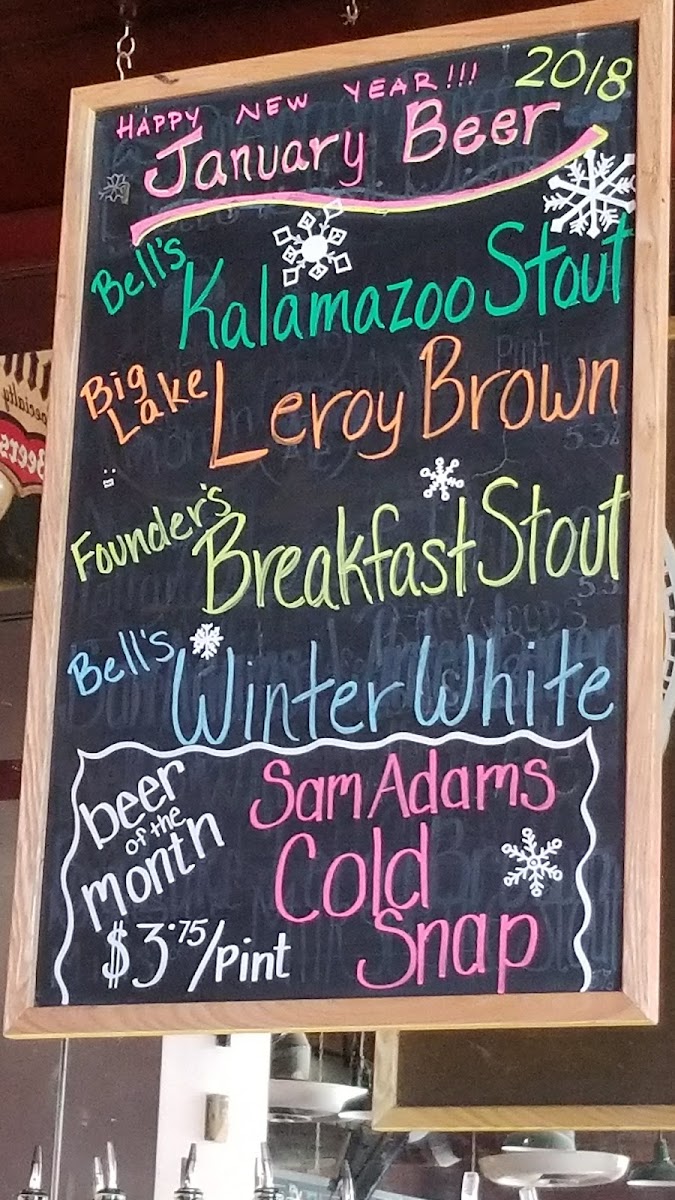 HAPPY NEW YEAR!!! 2018
January Beer
Bell's Kalamazoo Stout
Big Lake Leroy Brown
Founder's Breakfast Stout
Bell's Winter White
beer of the month
Sam Adams
Cold
Snap
$3.75/pint
Specialty
Beers